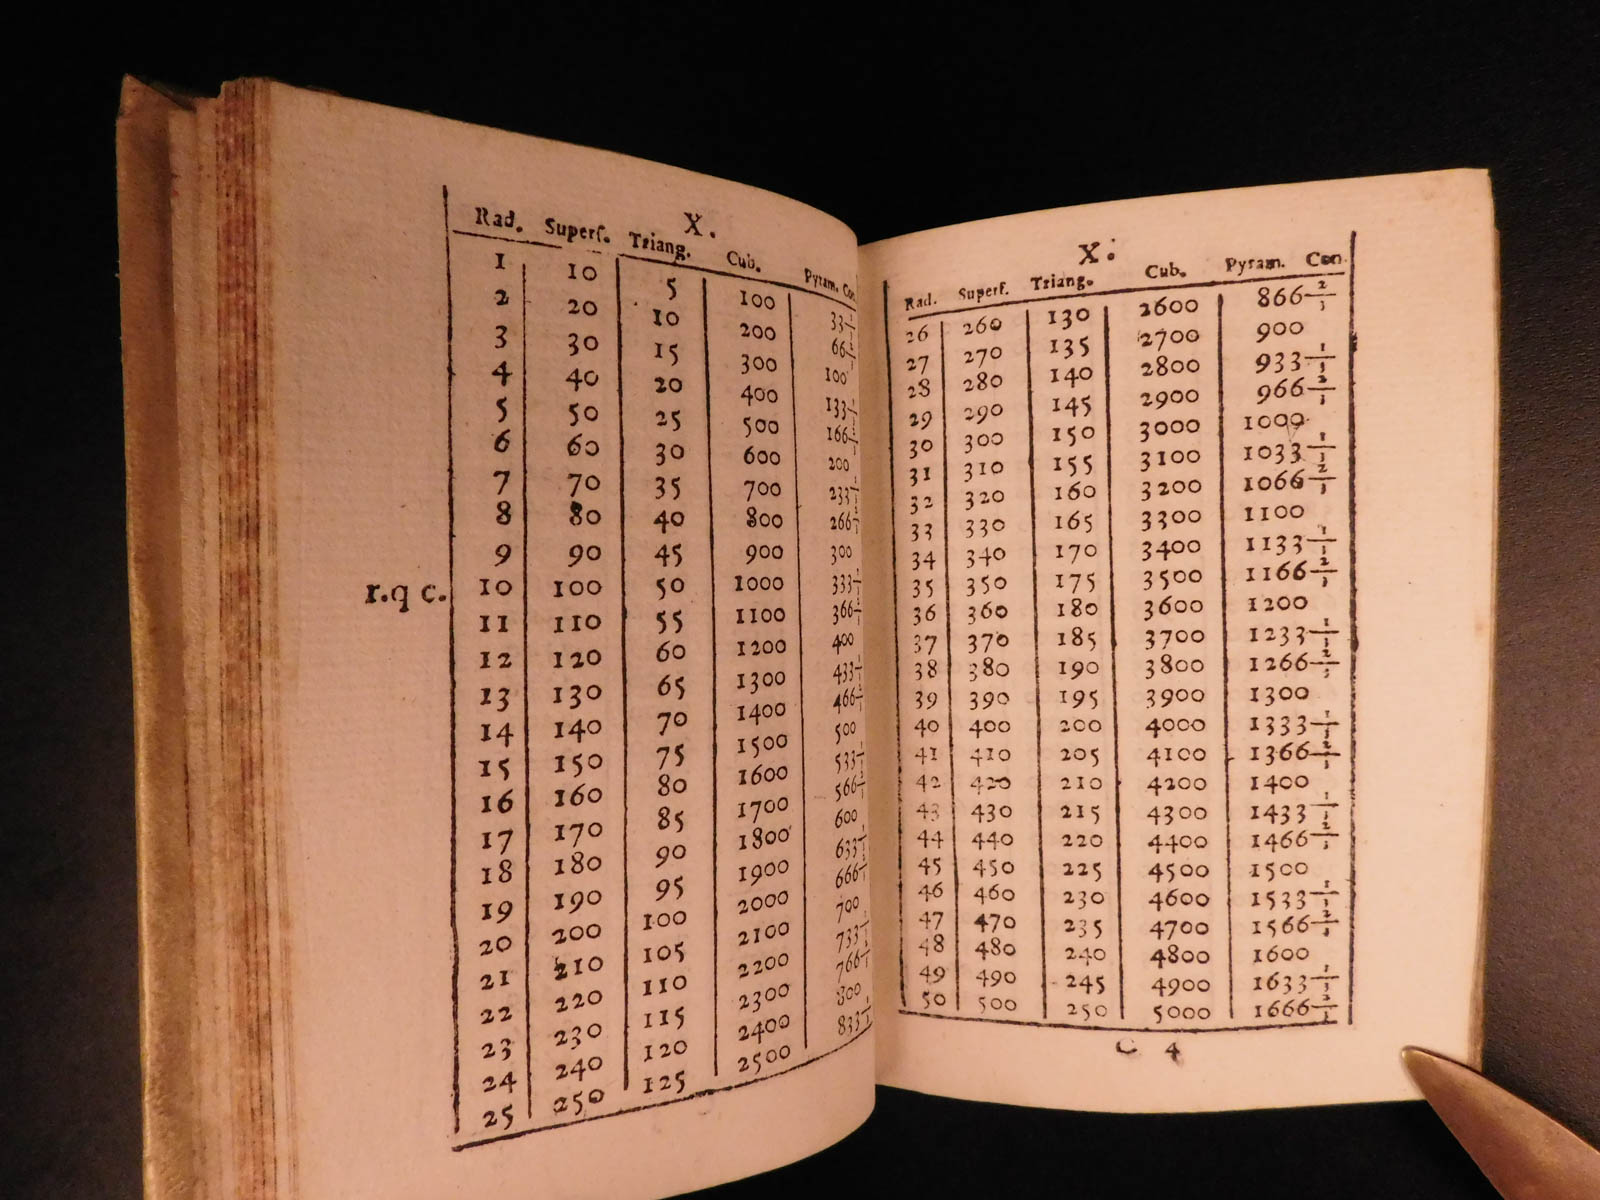 X.
Rad. Superſ. Triang. Cub. Pyram. Con
1 10 5 100 33 1/3
2 20 10 200 66 2/3
3 30 15 300 100
4 40 20 400 133 1/3
5 50 25 500 166 2/3
6 60 30 600 200
7 70 35 700 233 1/3
8 80 40 800 266 2/3
9 90 45 900 300
r.q c. 10 100 50 1000 333 1/3
11 110 55 1100 366 2/3
12 120 60 1200 400
13 130 65 1300 433 1/3
14 140 70 1400 466 2/3
15 150 75 1500 500
16 160 80 1600 533 1/3
17 170 85 1700 566 2/3
18 180 90 1800 600
19 190 95 1900 633 1/3
20 200 100 2000 666 2/3
21 210 105 2100 700
22 220 110 2200 733 1/3
23 230 115 2300 766 2/3
24 240 120 2400 800
25 250 125 2500 833 1/3
X.
Rad. Superſ. Triang. Cub. Pyram. Con
26 260 130 2600 866 2/3
27 270 135 2700 900
28 280 140 2800 933 1/3
29 290 145 2900 966 2/3
30 300 150 3000 1000
31 310 155 3100 1033 1/3
32 320 160 3200 1066 2/3
33 330 165 3300 1100
34 340 170 3400 1133 1/3
35 350 175 3500 1166 2/3
36 360 180 3600 1200
37 370 185 3700 1233 1/3
38 380 190 3800 1266 2/3
39 390 195 3900 1300
40 400 200 4000 1333 1/3
41 410 205 4100 1366 2/3
42 420 210 4200 1400
43 430 215 4300 1433 1/3
44 440 220 4400 1466 2/3
45 450 225 4500 1500
46 460 230 4600 1533 1/3
47 470 235 4700 1566 2/3
48 480 240 4800 1600
49 490 245 4900 1633 1/3
50 500 250 5000 1666 2/3
C 4